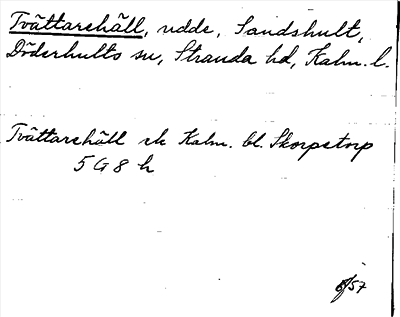 Tvättarehäll, udde, Sandshult,
Döderhults sn, Stranda hd, Kalm. l.
Tvättarehäll ek Kalm. bl. Skorpetorp
5 G 8 h
/57